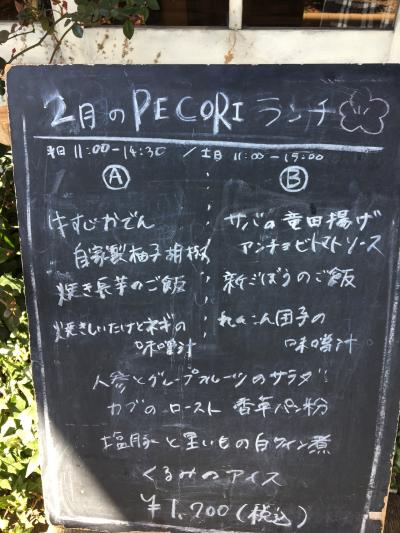 2月のPECORIランチ
平日 11:00-14:30 / 土日 11:00-15:00
Ⓐ
牛すじおでん
自家製柚子胡椒
焼き長芋のご飯
焼きしいたけとネギの
味噌汁
Ⓑ
サバの竜田揚げ
アンチョビトマトソース
新ごぼうのご飯
れんこん団子の
味噌汁
人参とグレープフルーツのサラダ
カブのロースト 香草パン粉
塩豚と里いもの白ワイン煮
くるみのアイス
¥1,700(税込)